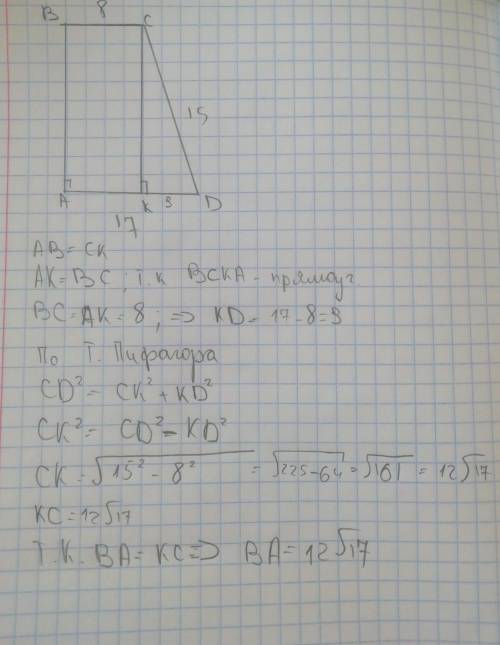 8
B C
15
A K 9 D
17
AB = CK
AK = BC; т.к BCKA - прямоуг
BC = AK = 8; => KD = 17 - 8 = 9
По Т. Пифагора
CD² = CK² + KD²
CK² = CD² - KD²
CK = √15² - 8² = √225-64 = √161 = 12√17
KC = 12√17
Т.К. BA = KC => BA = 12√17